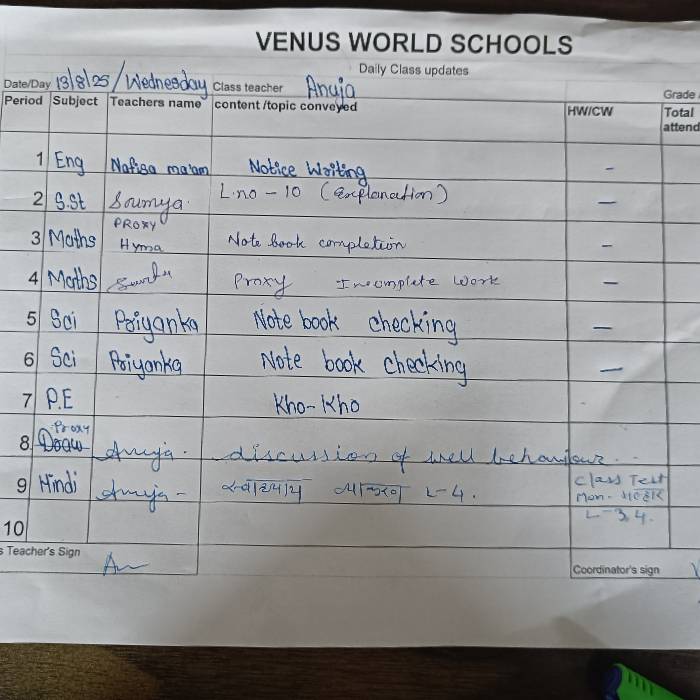 VENUS WORLD SCHOOLS
Daily Class updates
Date/Day 13/8/25 / Wednesday Class teacher Anuja Grade
Period Subject Teachers name content /topic conveyed HW/CW Total attend
1 Eng Nafisa ma'am Notice Writing -
2 S.St Soumya. L.no - 10 (Explanation) -
3 Maths PROXY Hyma Note book completion -
4 Maths Proxy Incomplete Work -
5 Sci Priyanka Note book checking -
6 Sci Priyanka Note book checking -
7 P.E Kho-Kho
8 Proxy Draw Anuja. discussion of well behaviour..
9 Hindi Anuja - स्वाध्याय L-4. Class Test
Mon-
10 L-3,4.
s Teacher's Sign Coordinator's sign